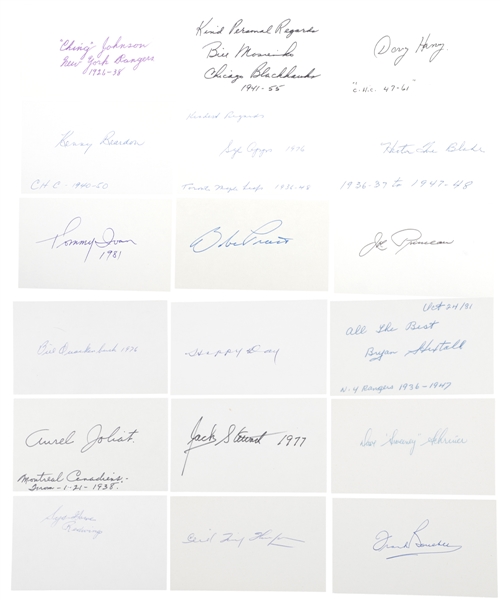 "Ching" Johnson
New York Rangers
1926-38
Kind Personal Regards
Bill Mosienko
Chicago Blackhawks
1941-55
Doug Harvey
"C.H.C. 47-61"
Kenny Reardon
C.H.C - 1940-50
Kindest Regards
Syl Apps 1976
Toronto Maple Leafs 1936-48
Hector Toe Blake
1936-37 to 1947-48
Tommy Ivan
1981
Babe Pratt
Joe Primeau
Bill Quackenbush 1976
Happy Day
Oct 24/91
All the Best
Bryan Hextall
N-Y Rangers 1936-1947
Aurel Joliat.
Montreal Canadiens.-
1-21-1938.
Jack Stewart 1977
Dave "Sweeney" Schriner
Frank Boucher